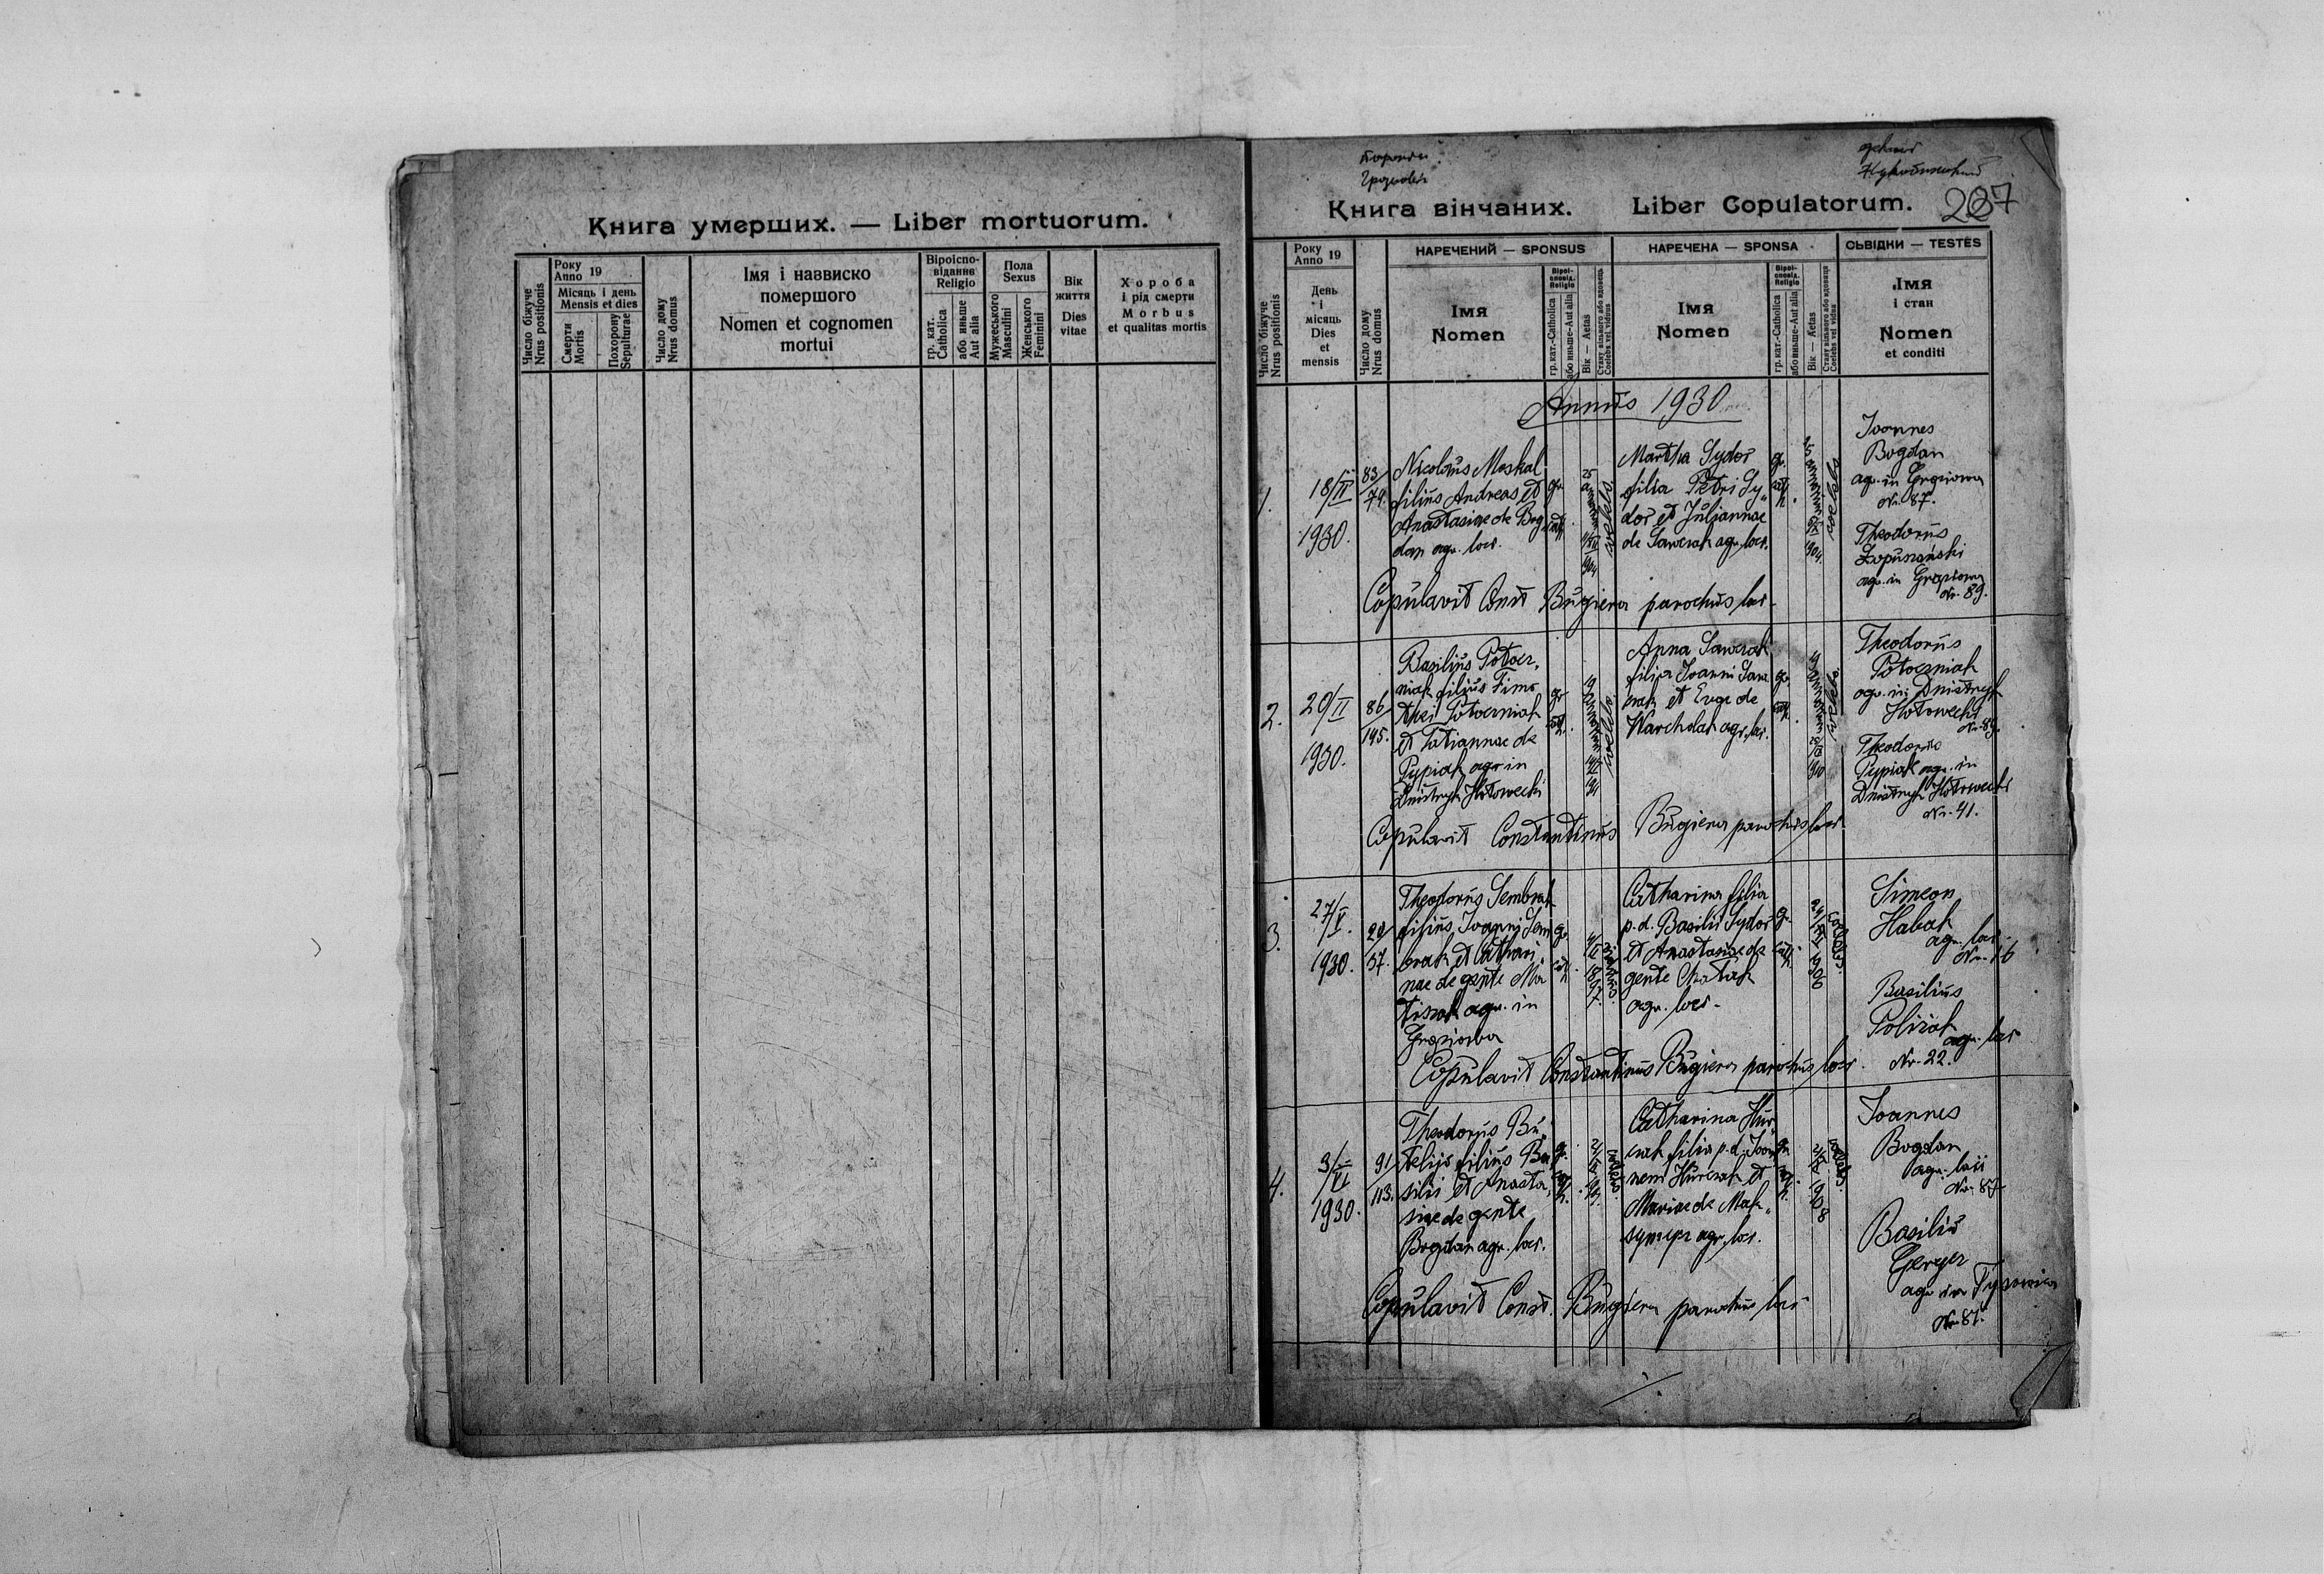 Книга умерших. — Liber mortuorum.
Число біжуче
Nrus positionis
Року
Anno 19
Місяць і день
Mensis et dies
Смерти
Mortis
Похорону
Sepulturae
Число дому
Nrus domus
Імя і наввиско
помершого
Nomen et cognomen
mortui
Віроіспо-
відание
Religio
гр. кат.
Catholica
або иньше
Aut alia
Пола
Sexus
Мужеського
Masculini
Женського
Feminini
Вік
життя
Dies
vitae
Хороба
і рід смерти
Morbus
et qualitas mortis
Книга вінчаних. Liber Copulatorum.
Число біжуче
Nrus positionis
Року
Anno 19
День
і
місяць
Dies
et
mensis
Число дому
Nrus domus
НАРЕЧЕНИЙ — SPONSUS
Імя
Nomen
Religio
гр. кат.-Catholica
або иньше-Aut alia
Вік — Aetas
НАРЕЧЕНА — SPONSA
Імя
Nomen
Religio
гр. кат.-Catholica
або иньше-Aut alia
Вік — Aetas
СЬВІДКИ — TESTES
Імя
і стан
Nomen
et conditi
Annus 1930
1.
18/II
1930.
83/
74.
Nicolaus Moskal
filius Andreas et
Anastasiae de Bog
dan agr. loci.
gr.
cath.
coelebs.
Martha Sydor
filia Petri Sy„
dor et Juliannae
de Sawczak agr. loci.
gr.
cath.
coelebs
Joannes
Bogdan
agr. in Groziowa
Nr. 87.
Theodorus
Łopuszański
agr. in Groziowa
Nr. 89.
Copulavit Const Bugiera parochus loci
2.
20/II
1930.
86/
145.
Basilius Potocz„
niak filius Timo
thei Potoczniak
et Tatiannae de
Pypiak agr in
Dnistryk Hołowecki
gr.
cath.
coelebs
Anna Sawczak
filia Joanni Saw
czak et Evae de
Warcholak agr. loci.
gr.
cath.
coelebs.
Theodorus
Potoczniak
agr. in Dnistryk
Hołowecki
Nr. 89.
Theodorus
Pypiak agr. in
Dnistryk Hołowecki
Nr. 41.
Copulavit Constantinus Bugiera parochus loci
3.
27/V.
1930.
20/
57.
Theodorus Sembrak
filius Joanni Sem
brak et Cathari
nae de gente Ma
tiszak agr. in
Groziowa
gr.
cath.
4/II 1897.
Catharina filia
p.d. Basilii Sydor
et Anastasiae de
gente Chatak
agr. loci.
gr.
cath.
24/XII 1906
coelebs.
Simeon
Habak
agr. loci
Nr. 16
Basilius
Poliżak
agr. loci
Nr. 22.
Copulavit Constantinus Bugiera parochus loci.
4.
3/VI
1930.
91/
113.
Theodorus Bu„
telijo filius Ba
silii et Anasta„
siae de gente
Bogdan agr. loci.
gr.
cath.
coelebs.
Catharina Hur
czak filia p.d. Joan
nem Hurczak et
Mariae de Mak„
symepr agr. loci.
gr.
cath.
1908
coelebs.
Joannes
Bogdan
agr. loci
Nr. 87
Basilius
Gerger
agr in Tysowica
Nr 87.
Copulavit Const. Bugiera parochus loci